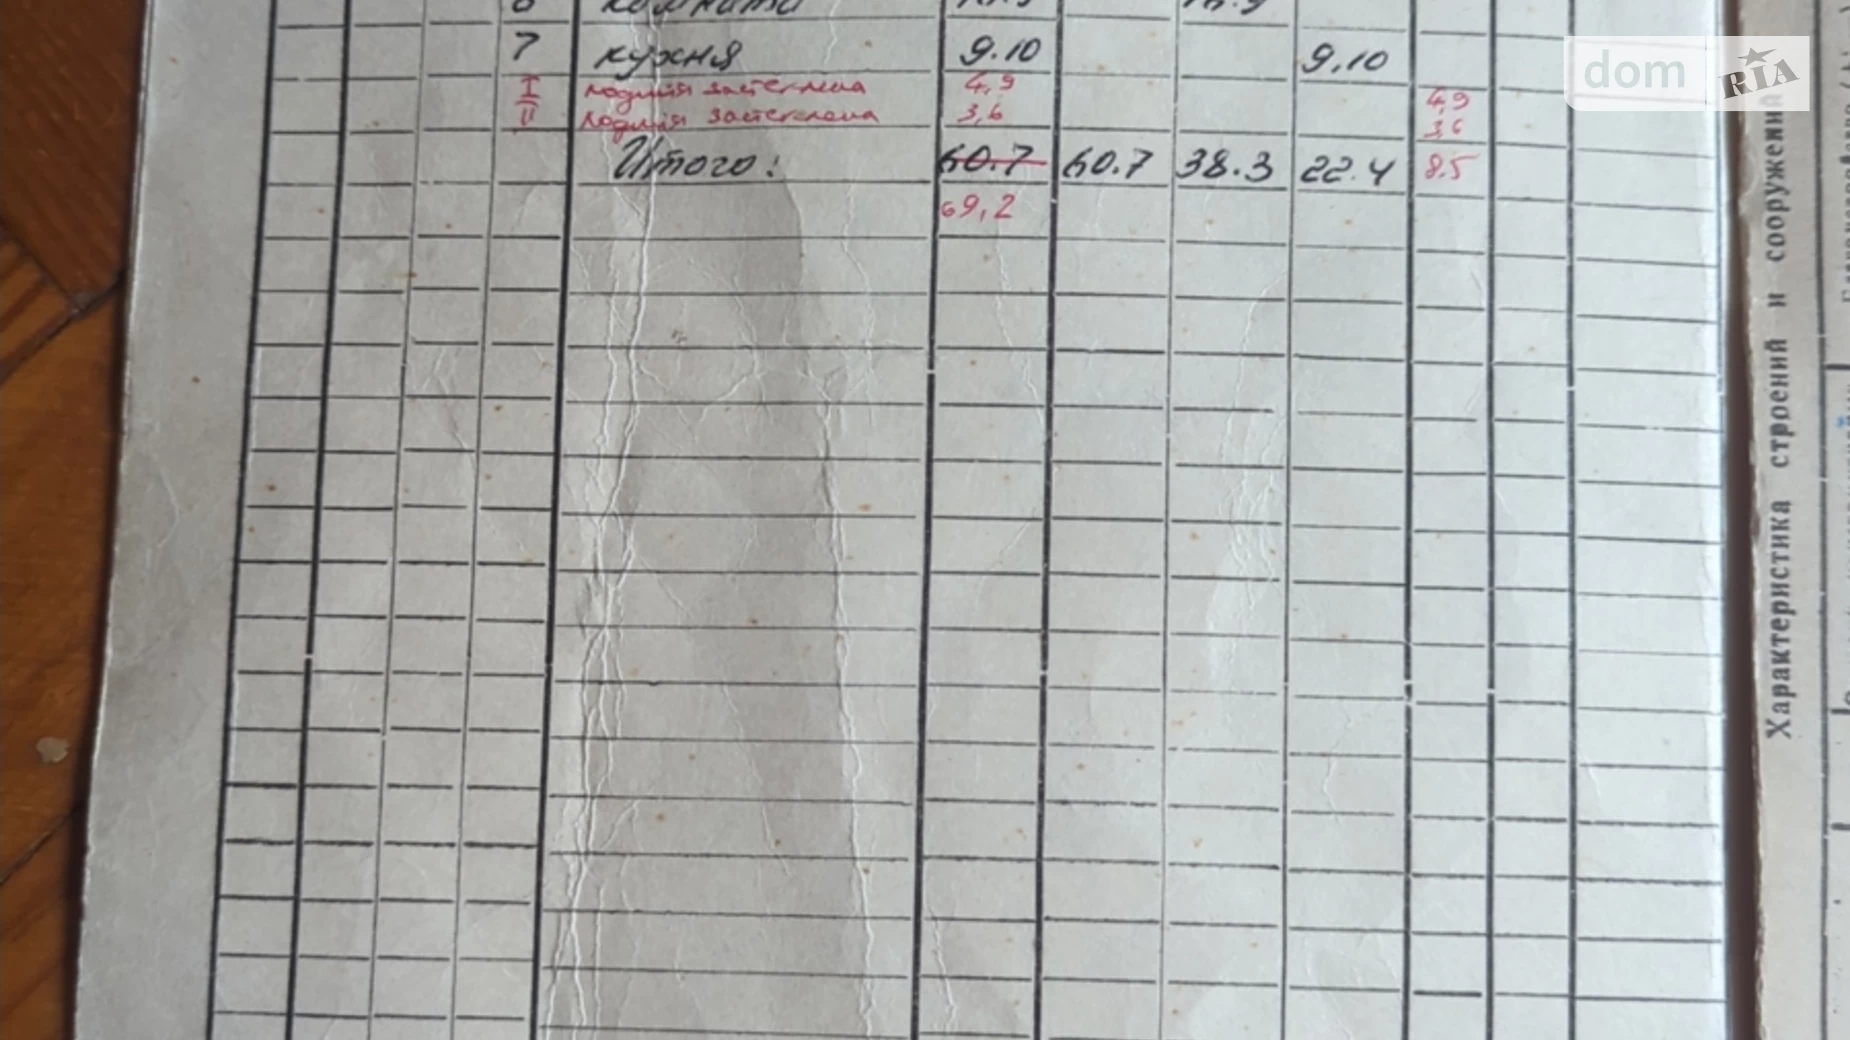 7 кухня 9.10 9.10
I лоджія застеклена 4,9 4,9
II лоджія застеклена 3,6 3,6
Итого: 60.7 60.7 38.3 22.4 8.5
69,2
dom RIA
Характеристика строений и сооружений